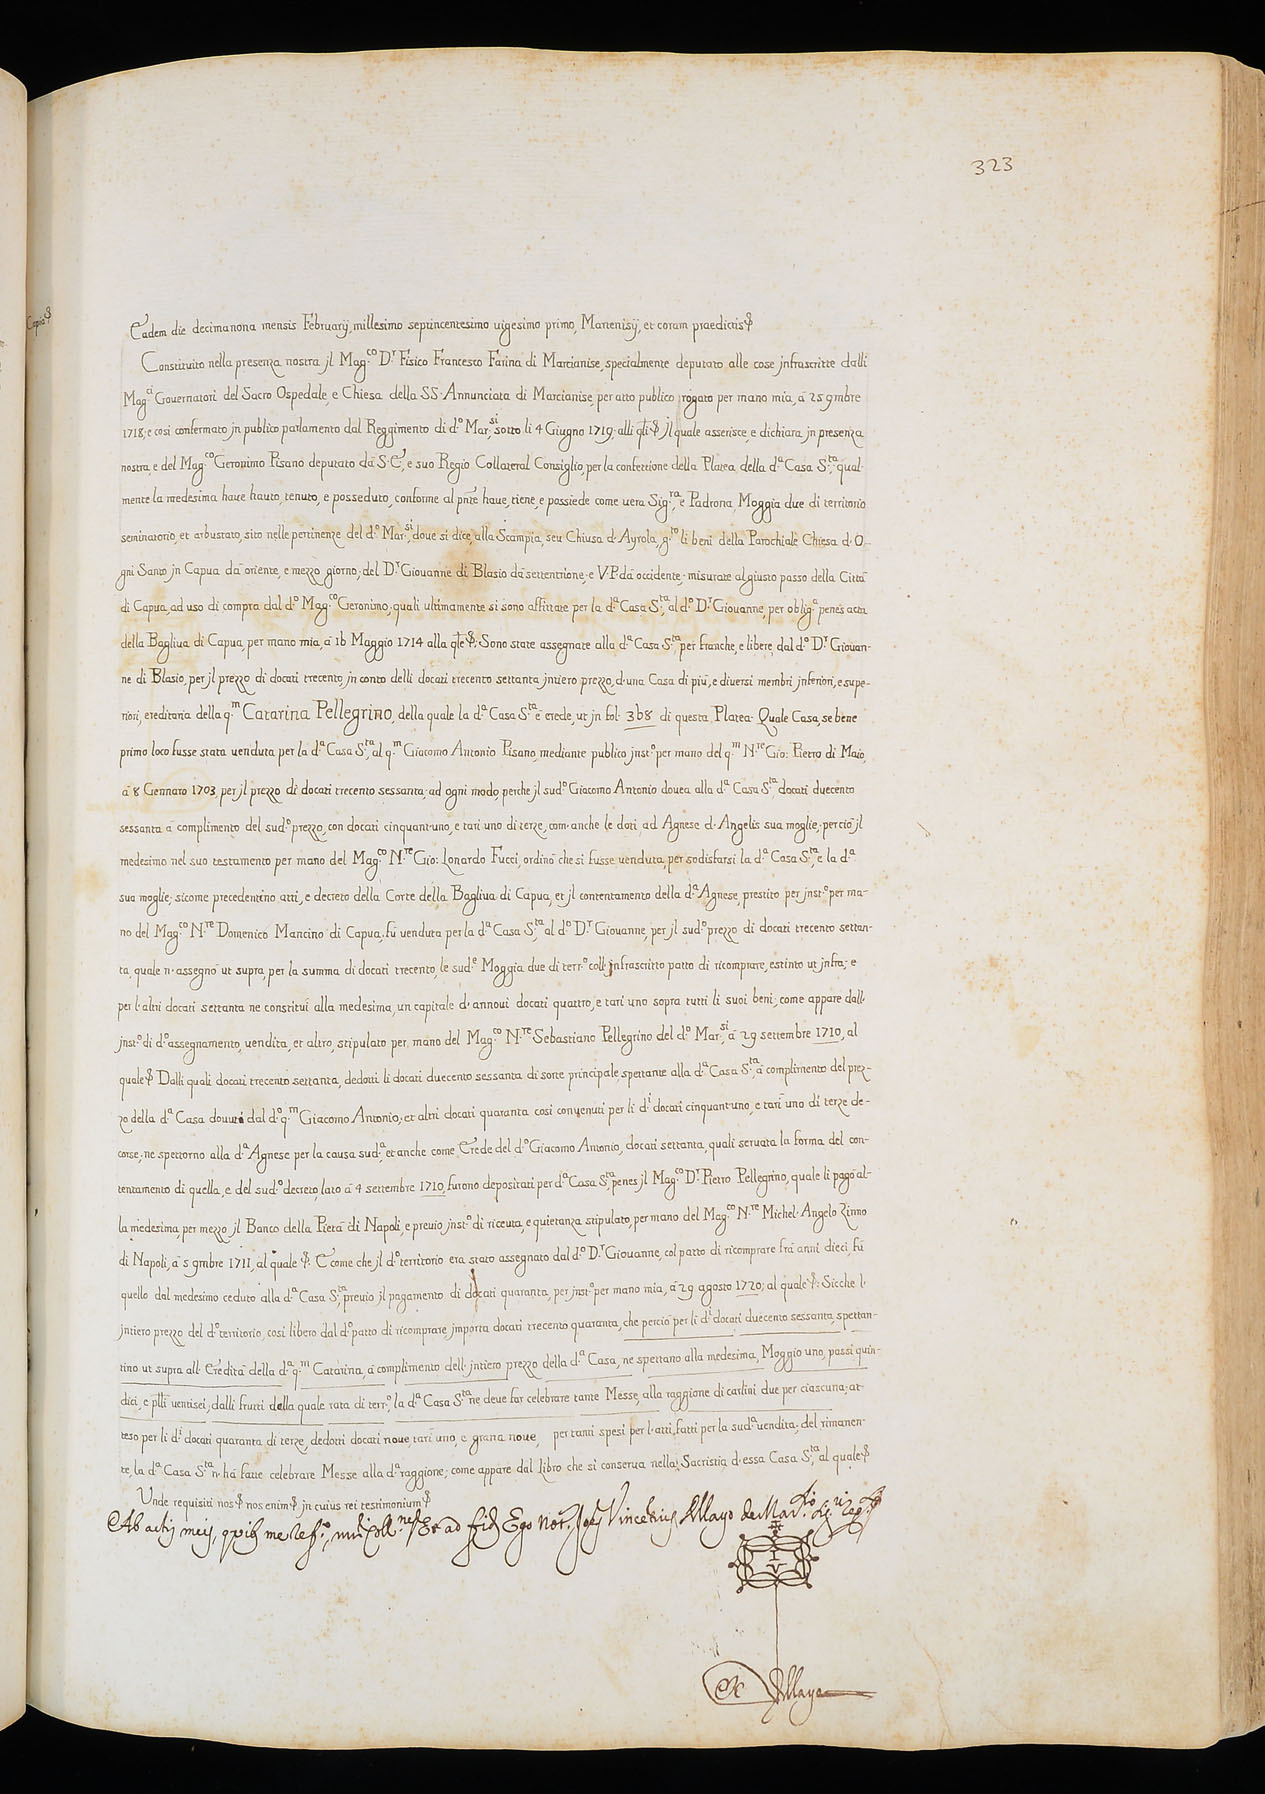 323
Copia
Eadem die decimanona mensis Februarij, millesimo septincentesimo uigesimo primo, Martenisij, et coram praedictis
Constituito nella presenza nostra jl Mag.co D.r Fisico Francesco Farina di Marcianise, specialmente deputato alle cose jnfrascritte dalli
Mag.ci Gouernatori del Sacro Ospedale, e Chiesa della SS. Annunciata di Marcianise, per atto publico rogato per mano mia, à 25 9mbre
1718; e cosi confermato jn publico parlamento dal Reggimento di d.o Mar.si sotto li 4 Giugno 1719; alli q̃li jl quale asserisce, e dichiara jn presenza
nostra, e del Mag.co Geronimo Pisano deputato da S. E., e suo Regio Collateral Consiglio, per la confettione della Platea della d.a Casa S.ta, qual-
mente la medesima haue hauto, tenuto, e posseduto, conforme al pñte haue, tiene, e possiede come uera Sig.ra, e Padrona, Moggia due di territorio
seminatorio, et arbustato, sito nelle pertinenze del d.o Mar.si, doue si dice, alla Scampia, seu Chiusa d'Ayrola, g.to li beni della Parochiale Chiesa d'O-
gni Santo jn Capua dà oriente, e mezzo giorno; del D.r Giouanne di Blasio dà settentrione; e V.P. dà occidente; misurate al giusto passo della Città
di Capua, ad uso di compra dal d.o Mag.co Geronimo, quali ultimamente si sono affittate per la d.a Casa S.ta, al d.o D.r Giouanne, per oblig.a penes acta
della Bagliua di Capua, per mano mia, à 16 Maggio 1714 alla q̃le. Sono state assegnate alla d.a Casa S.ta, per franche, e libere, dal d.o D.r Giouan-
ne di Blasio, per jl prezzo di docati trecento, jn conto delli docati trecento settanta jntiero prezzo, d'una Casa di più, e diuersi membri jnferiori, e supe-
riori, ereditaria della q.m Catarina Pellegrino, della quale la d.a Casa S.ta è erede, ut jn fol. 368 di questa Platea. Quale Casa, se bene
primo loco fusse stata uenduta per la d.a Casa S.ta, al q.m Giacomo Antonio Pisano, mediante publico jnst.o per mano del q.m N.re Gio: Pietro di Maio,
à 8 Gennaro 1703, per jl prezzo di docati trecento sessanta, ad ogni modo, perche jl sud.o Giacomo Antonio douea alla d.a Casa S.ta docati duecento
sessanta à complimento del sud.o prezzo, con docati cinquant'uno, e tarì uno di terze, com'anche le doti, ad Agnese d'Angelis sua moglie, perciò jl
medesimo nel suo testamento per mano del Mag.co N.re Gio: Lonardo Fucci, ordinò che si fusse uenduta, per sodisfarsi la d.a Casa S.ta, e la d.a
sua moglie; sicome precedentino atti, e decreto della Corte della Bagliua di Capua, et jl contentamento della d.a Agnese, prestito per jnst.o per ma-
no del Mag.co N.re Domenico Mancino di Capua, fù uenduta per la d.a Casa S.ta al d.o D.r Giouanne, per jl sud.o prezzo di docati trecento settan-
ta, quale n'assegnò ut supra, per la summa di docati trecento, le sud.e Moggia due di terr.o coll'jnfrascritto patto di ricomprare, estinto ut jnfra; e
per l'altri docati settanta ne constituì alla medesima, un capitale d'annoui docati quattro, e tarì uno sopra tutti li suoi beni; come appare dall'
jnst.o di d.o assegnamento, uendita, et altro, stipulato per mano del Mag.co N.re Sebastiano Pellegrino del d.o Mar.si, à 29 settembre 1710, al
quale Dalli quali docati trecento settanta, dedotti li docati duecento sessanta di sorte principale, spettante alla d.a Casa S.ta, à complimento del prez-
zo della d.a Casa douuti dal d.o q.m Giacomo Antonio; et altri docati quaranta cosi conuenuti per li d.i docati cinquant'uno, e tarì uno di terze de-
corse; ne spettorno alla d.a Agnese per la causa sud.a, et anche come Erede del d.o Giacomo Antonio, docati settanta, quali seruata la forma del con-
tentamento di quella, e del sud.o decreto, lato à 4 settembre 1710, furono depositati per d.a Casa S.ta, penes jl Mag.co D.r Pietro Pellegrino, quale li pagò al-
la medesima, per mezzo jl Banco della Pietà di Napoli, e preuio jnst.o di riceuta, e quietanza stipulato, per mano del Mag.co N.re Michel'Angelo Zinno
di Napoli, à 5 9mbre 1711, al quale. E come che jl d.o territorio era stato assegnato dal d.o D.r Giouanne, col patto di ricomprare frà anni dieci, fù
quello dal medesimo ceduto alla d.a Casa S.ta, preuio jl pagamento di docati quaranta, per jnst.o per mano mia, à 29 agosto 1720; al quale: Sicche l'
jntiero prezzo del d.o territorio, cosi libero dal d.o patto di ricomprare, jmporta docati trecento quaranta, che perciò per li d.i docati duecento sessanta, spettan-
tino ut supra all'Eredità della d.a q.m Catarina, à complimento dell'jntiero prezzo della d.a Casa, ne spettano alla medesima, Moggio uno, passi quin-
dici, e p̃lli uentisei, dalli frutti della quale rata di terr.o, la d.a Casa S.ta ne deue far celebrare tante Messe, alla raggione di carlini due per ciascuna; at-
teso per li d.i docati quaranta di terze, dedotti docati noue, tarì uno, e grana noue, per tanti spesi per l'atti, fatti per la sud.a uendita, del rimanen-
te, la d.a Casa S.ta n'hà fatte celebrare Messe alla d.a raggione; come appare dal Libro che si conserua nella Sacristia d'essa Casa S.ta, al quale
Unde requisiti nos nos enim jn cuius rei testimonium
Ab actis meis, Et ad fid. Ego Not. Vincentius de Mar.